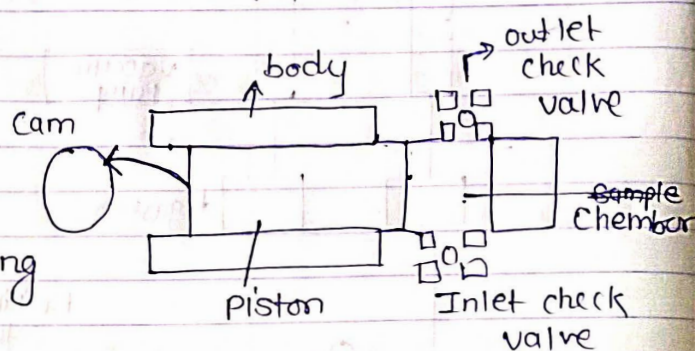 outlet
check
valve
body
Cam
sample
Chember
ng
piston
Inlet check
valve